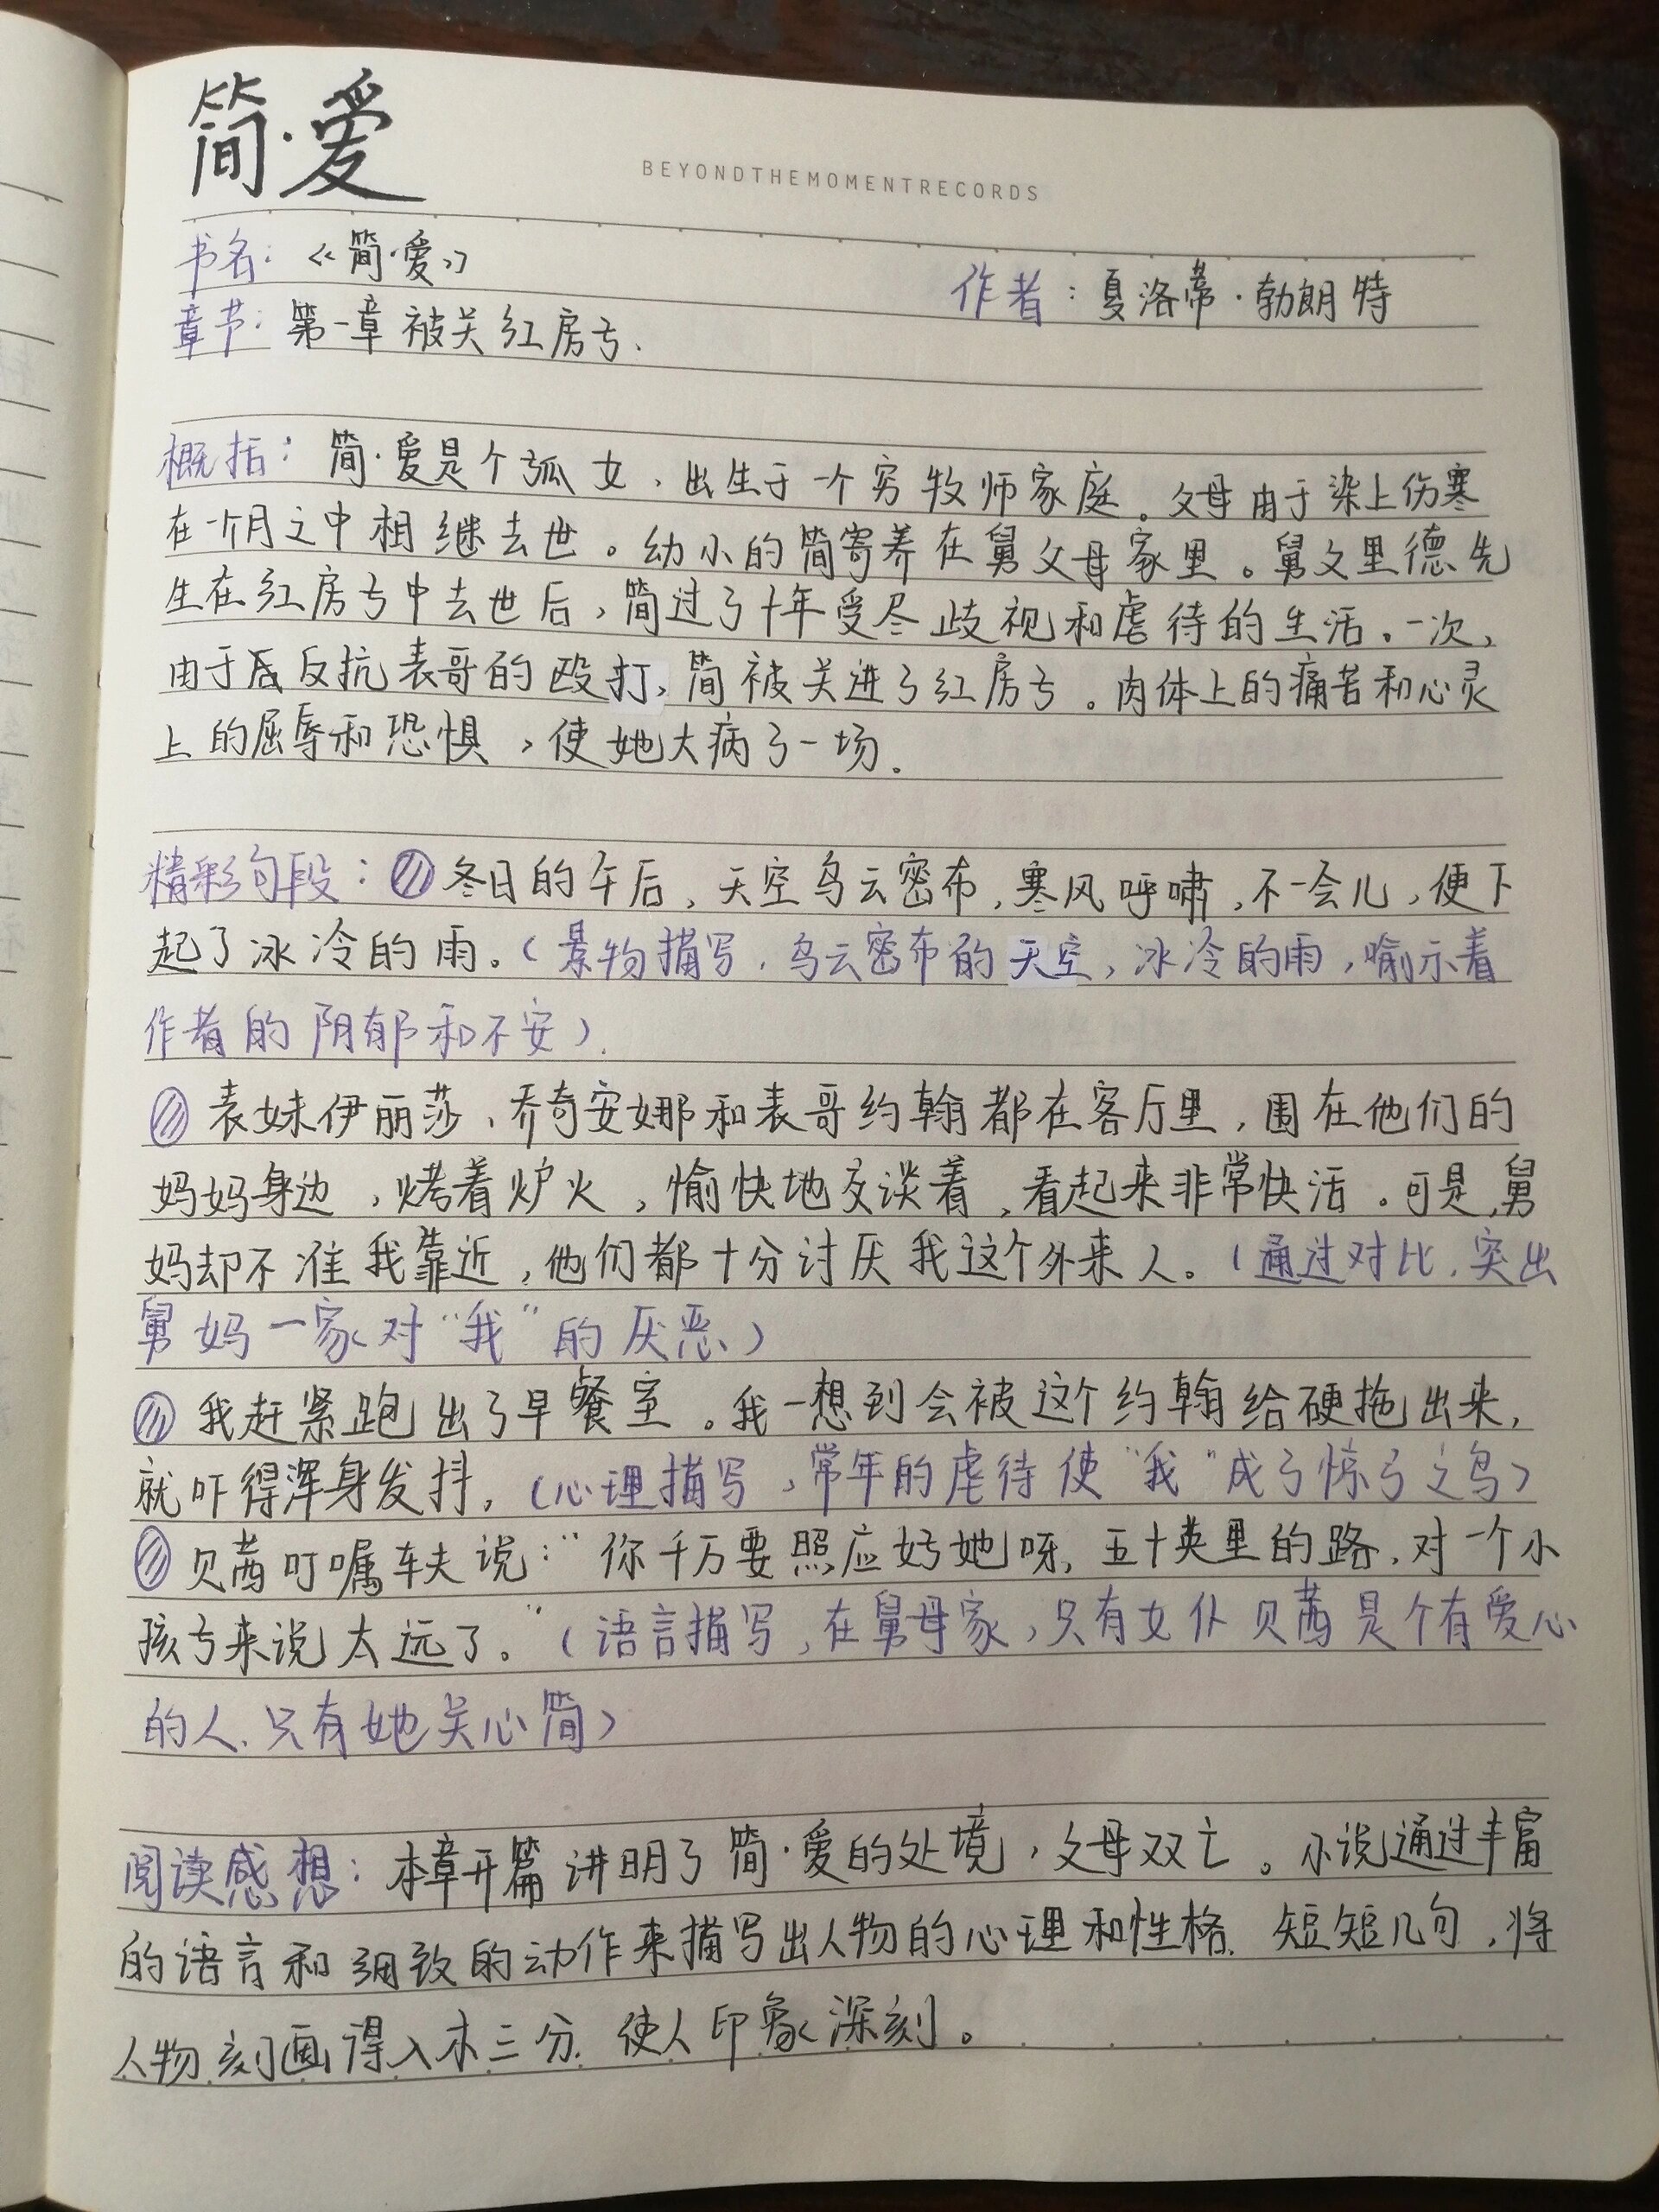 简·爱
BEYONDTHEMOMENTRECORDS
书名：《简·爱》
作者：夏洛蒂·勃朗特
章节：第一章 被关红房子.
概括：简·爱是个孤女，出生于一个穷牧师家庭。父母由于染上伤寒
在一个月之中相继去世。幼小的简寄养在舅父母家里。舅父里德先
生在红房子中去世后，简过了十年受尽歧视和虐待的生活。一次，
由于反抗表哥的殴打，简被关进了红房子。肉体上的痛苦和心灵
上的屈辱和恐惧，使她大病了一场.
精彩句段：冬日的午后，天空乌云密布，寒风呼啸，不一会儿，便下
起了冰冷的雨。（景物描写，乌云密布的天空，冰冷的雨，喻示着
作者的阴郁和不安）.
表妹伊丽莎、乔奇安娜和表哥约翰都在客厅里，围在他们的
妈妈身边，烤着炉火，愉快地交谈着，看起来非常快活。可是，舅
妈却不准我靠近，他们都十分讨厌我这个外来人。（通过对比，突出
舅妈一家对“我”的厌恶）
我赶紧跑出了早餐室。我一想到会被这个约翰给硬拖出来，
就吓得浑身发抖，（心理描写，常年的虐待使“我”成了惊弓之鸟）
贝茜叮嘱车夫说：“你千万要照应好她呀，五十英里的路，对一个小
孩子来说太远了。”（语言描写，在舅母家，只有女仆贝茜是个有爱心
的人，只有她关心简）
阅读感想：本章开篇讲明了简·爱的处境，父母双亡。小说通过丰富
的语言和细致的动作来描写出人物的心理和性格. 短短几句，将
人物刻画得入木三分. 使人印象深刻。